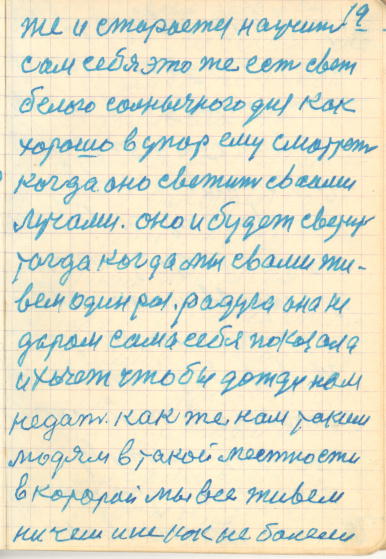 19
же и старается научит
сам себя это же ест свет
белого солнычного дня как
хорошо в упор ему смотрет
когда оно светит своими
лучами. оно и будет светит
тогда когда мы с вами жи-
вем один раз. радуга она не
даром сама себя показала
и хочет что бы дожди нам
недат. как же нам таким
людям в такой местности
в которой мы все живем
ни чем и не как не болеем